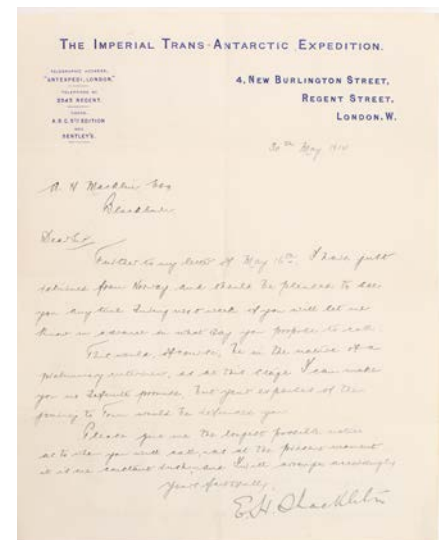 THE IMPERIAL TRANS-ANTARCTIC EXPEDITION.
TELEGRAPHIC ADDRESS,
"ANTEXPEDI, LONDON."
TELEPHONE No
2545 REGENT.
CODES
A.B.C. 5TH EDITION
AND
BENTLEY'S.
4, NEW BURLINGTON STREET,
REGENT STREET,
LONDON, W.
30th May 1914
A. H Macklin Esq
Blackburn
Dear Sir
Further to my letter of May 16th. I have just
returned from Norway and should be pleased to see
you any time during next week if you will let me
know in advance on what day you propose to call.
This would, of course, be in the nature of a
preliminary interview, as at this stage I can make
you no definite promise, but your expenses of the
journey to Town would be defrayed you
Please give me the longest possible notice
as to when you will call, as at the present moment
it is one constant rush, and I will arrange accordingly
Yours faithfully,
E. H. Shackleton